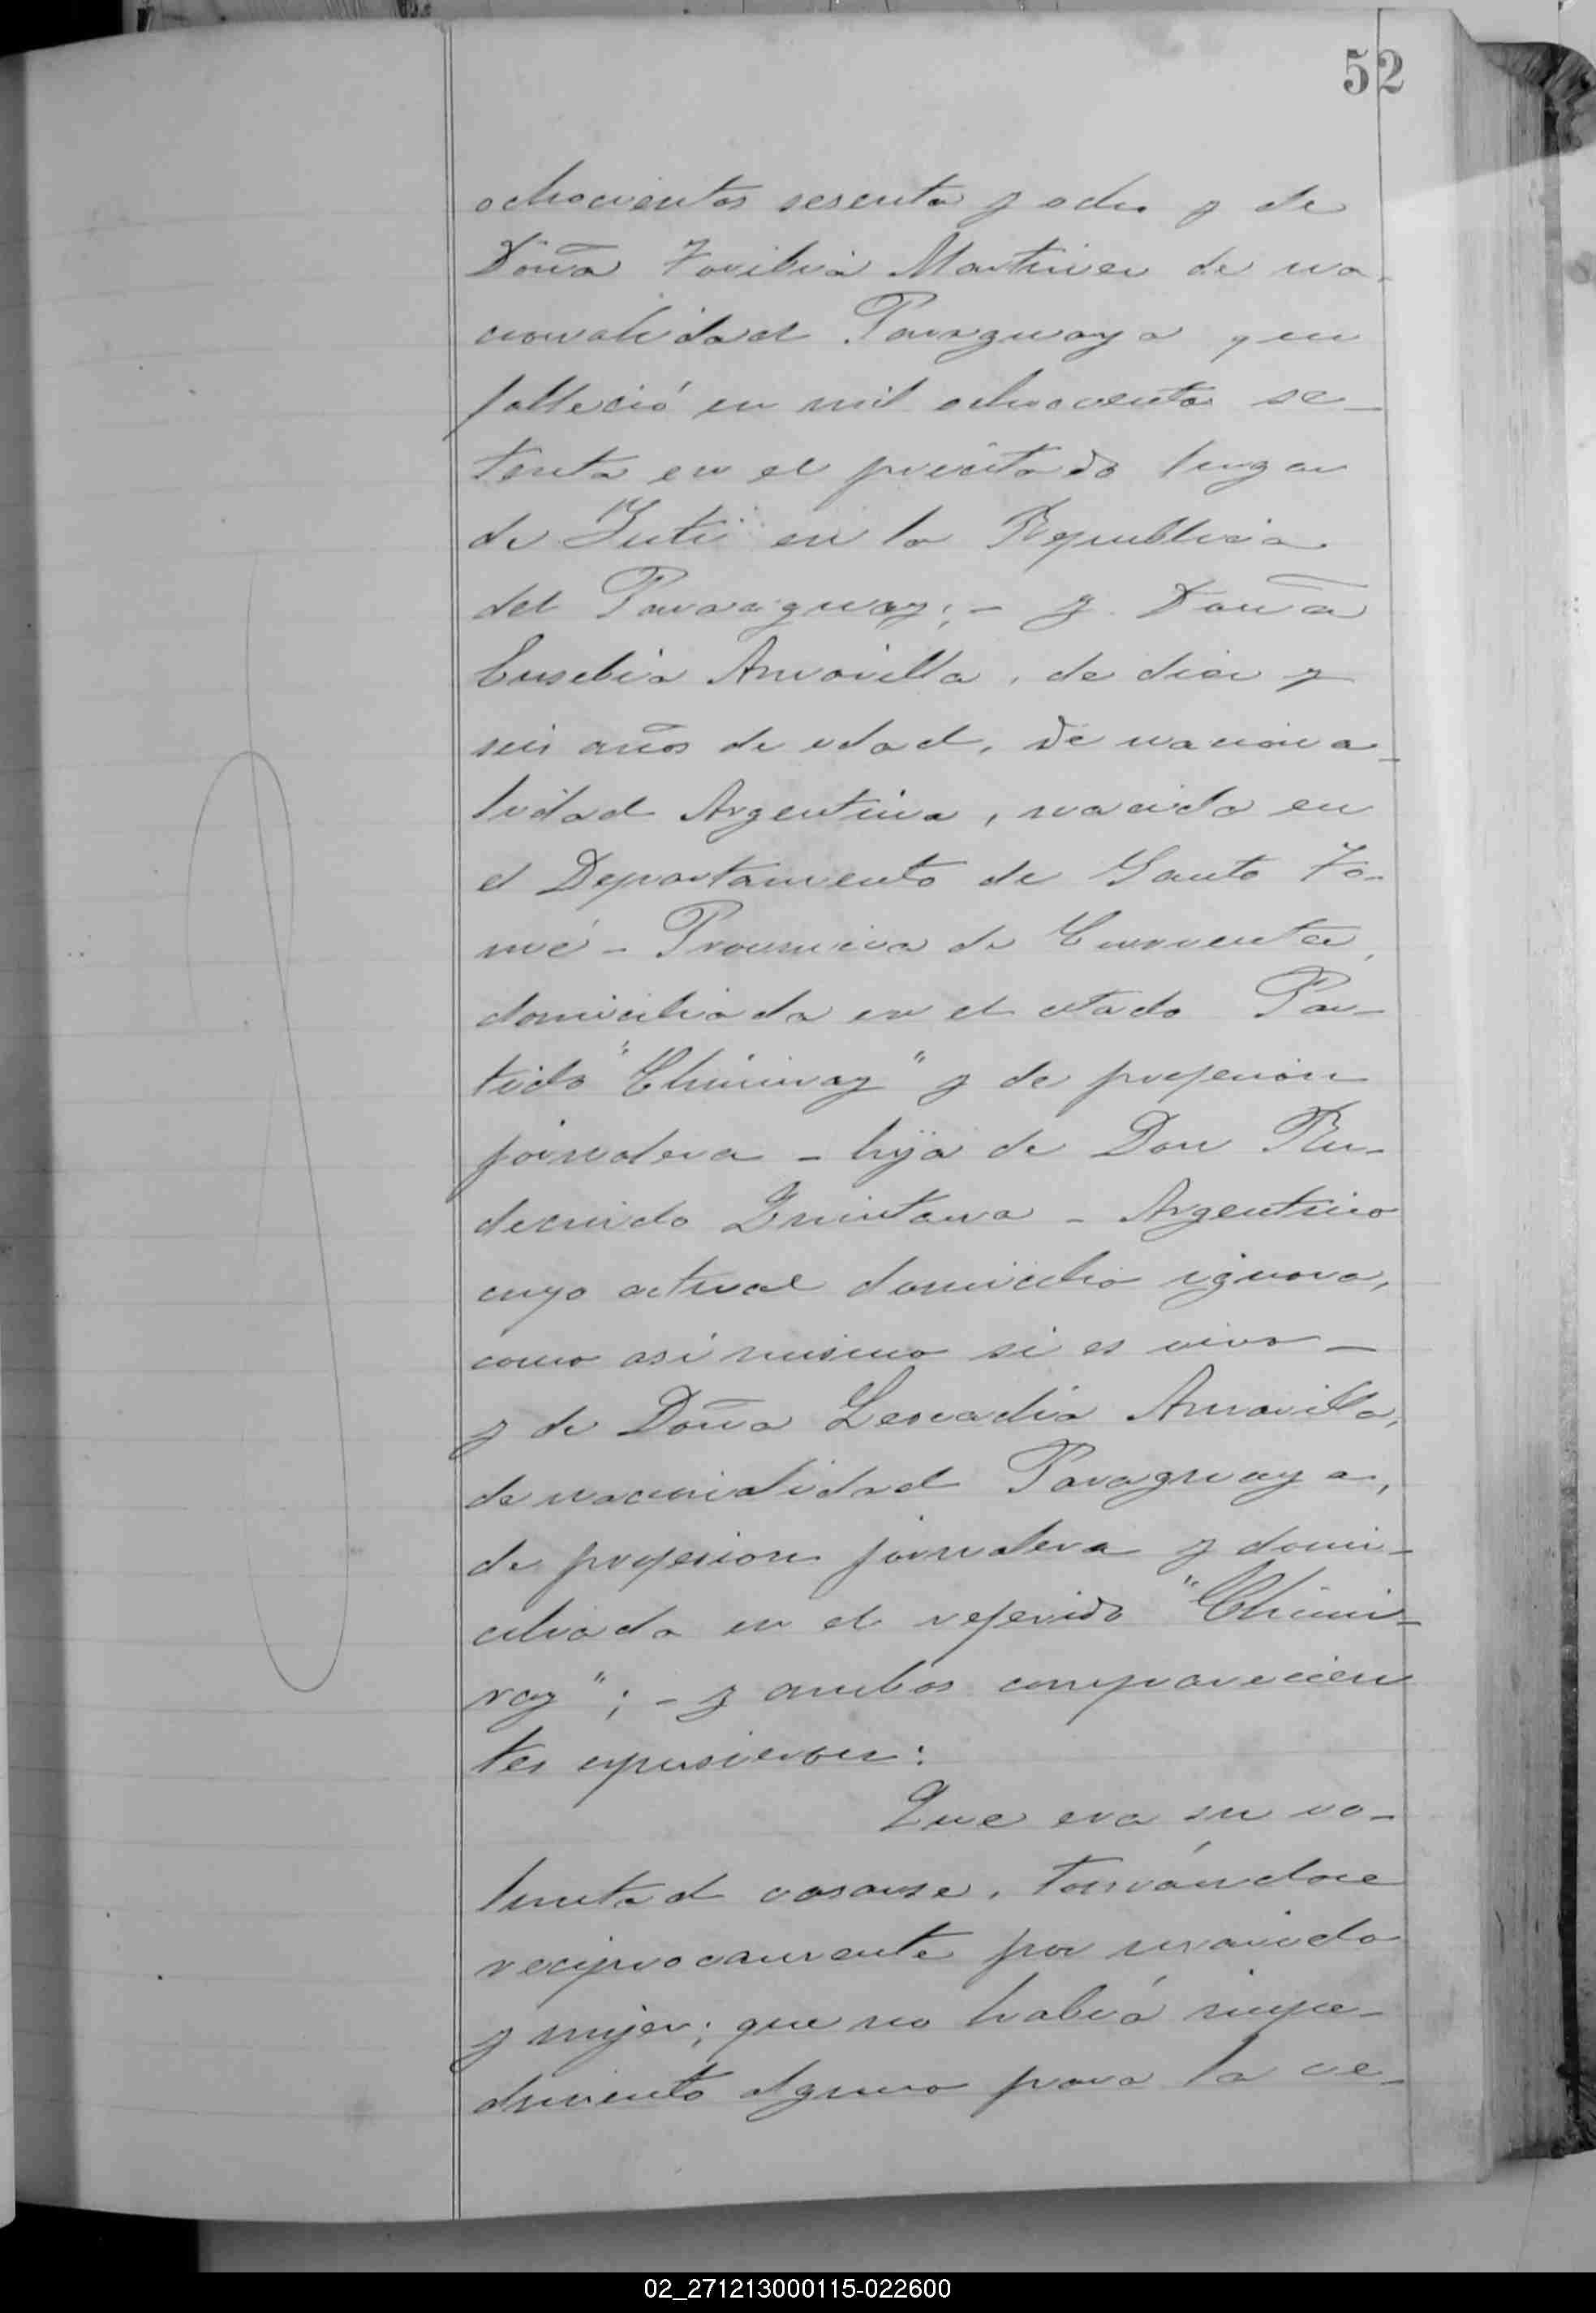 52
ochocientos sesenta y ocho y de
Doña Toribia Martinez de na-
cionalidad Paraguaya que
falleció en mil ochocientos se-
tenta en el precitado lugar
de Yuti en la Republica
del Paraguay; - y Doña
Eusebia Amarilla, de diez y
seis años de edad, de naciona-
lidad Argentina, nacida en
el Departamento de Santo To-
mé - Provincia de Corrientes,
domiciliada en el citado Par-
tido "Chimiray" y de profesion
jornalera - hija de Don Ru-
decindo Quintana - Argentino
cuyo actual domicilio ignora,
como asi mismo si es vivo -
y de Doña Leocadia Amarilla,
de nacionalidad Paraguaya,
de profesion jornalera y domi-
ciliada en el referido "Chimi-
ray"; - y ambos comparecien
tes expusieron:
Que era su vo-
luntad casarse, tomándose
reciprocamente por marido
y mujer; que no habiá impe-
dimento alguno para la ce-
02_271213000115-022600